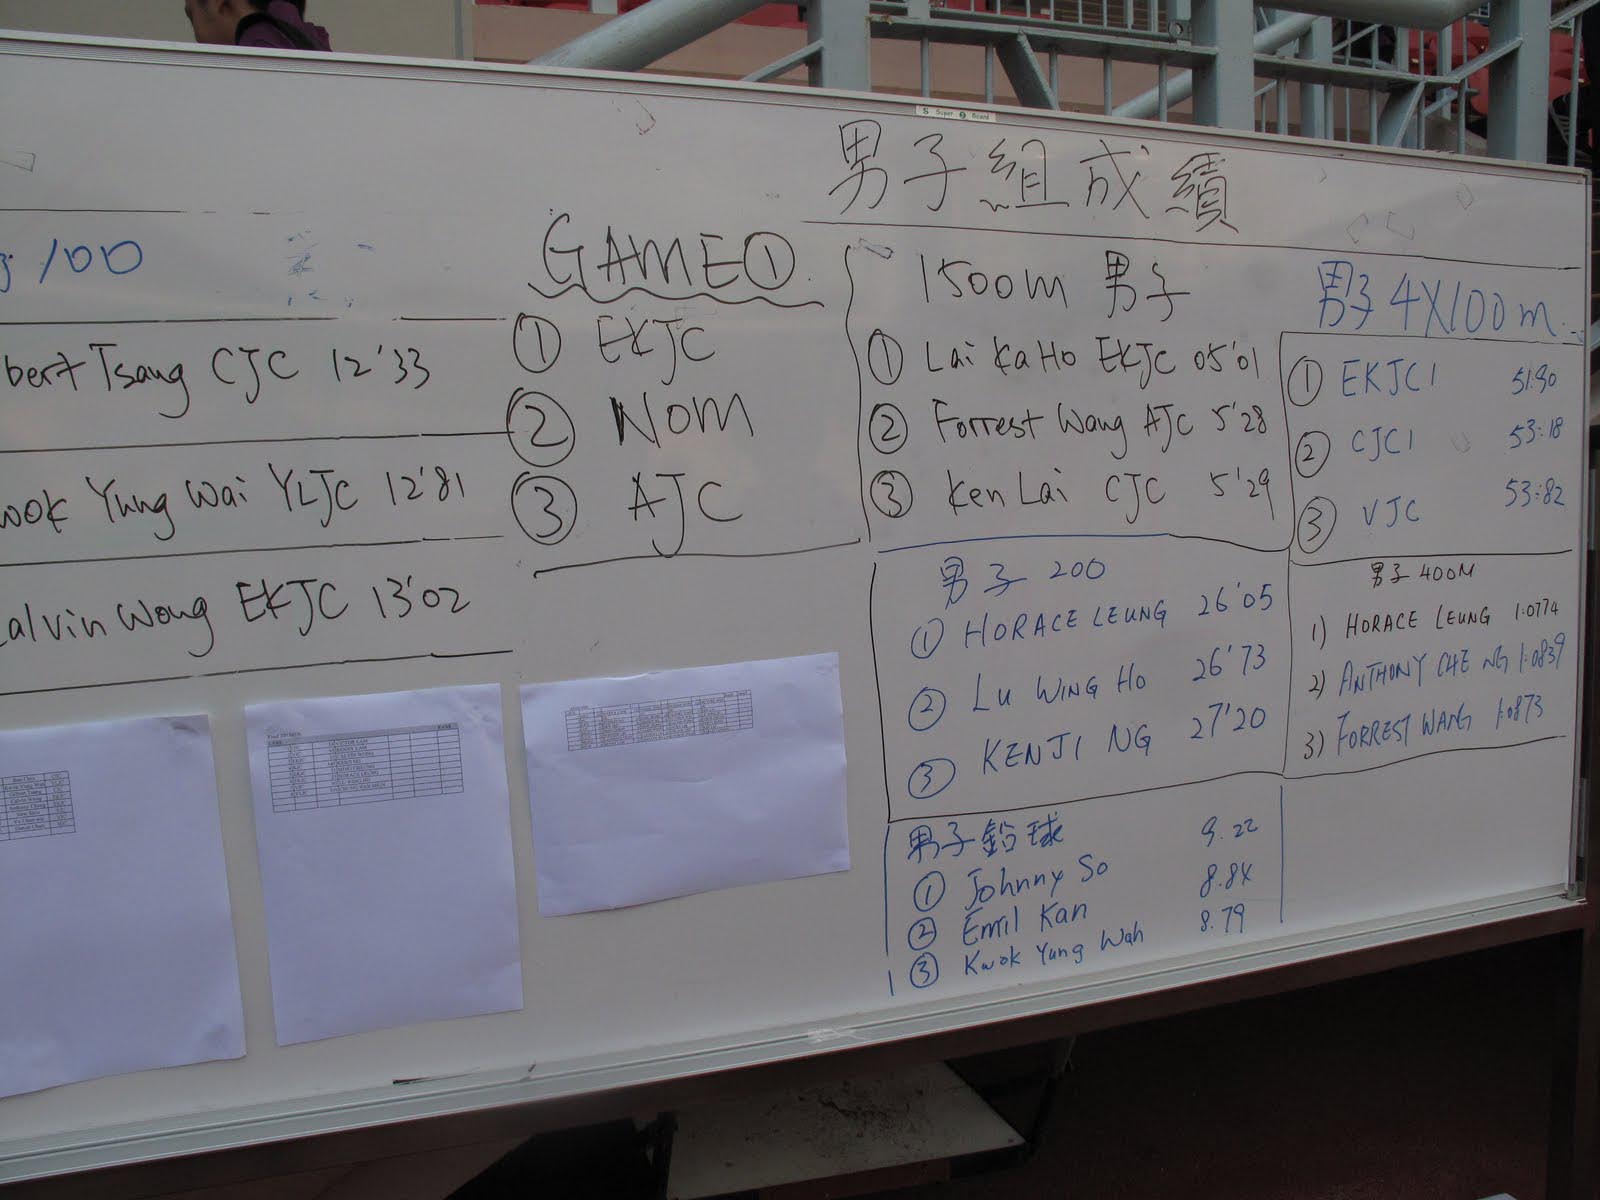 S Super Board
男子組成績
100
bert Tsang CJC 12'33
wok Yung Wai YLJC 12'81
alvin Wong EKJC 13'02
GAME①
① EKJC
② NOM
③ AJC
1500m 男子
① Lai Ka Ho EKJC 05'01
② Forrest Wang AJC 5'28
③ Ken Lai CJC 5'29
男子 4X100m
① EKJC1 51:90
② CJC1 53:18
③ VJC 53:82
男子 200
① HORACE LEUNG 26'05
② LU WING HO 26'73
③ KENJI NG 27'20
男子 400M
1) HORACE LEUNG 1:0774
2) ANTHONY CHE NG 1:0839
3) FORREST WANG 1:0873
男子鉛球
① Johnny So 9.22
② Emil Kan 8.84
③ Kwok Yung Wah 8.79